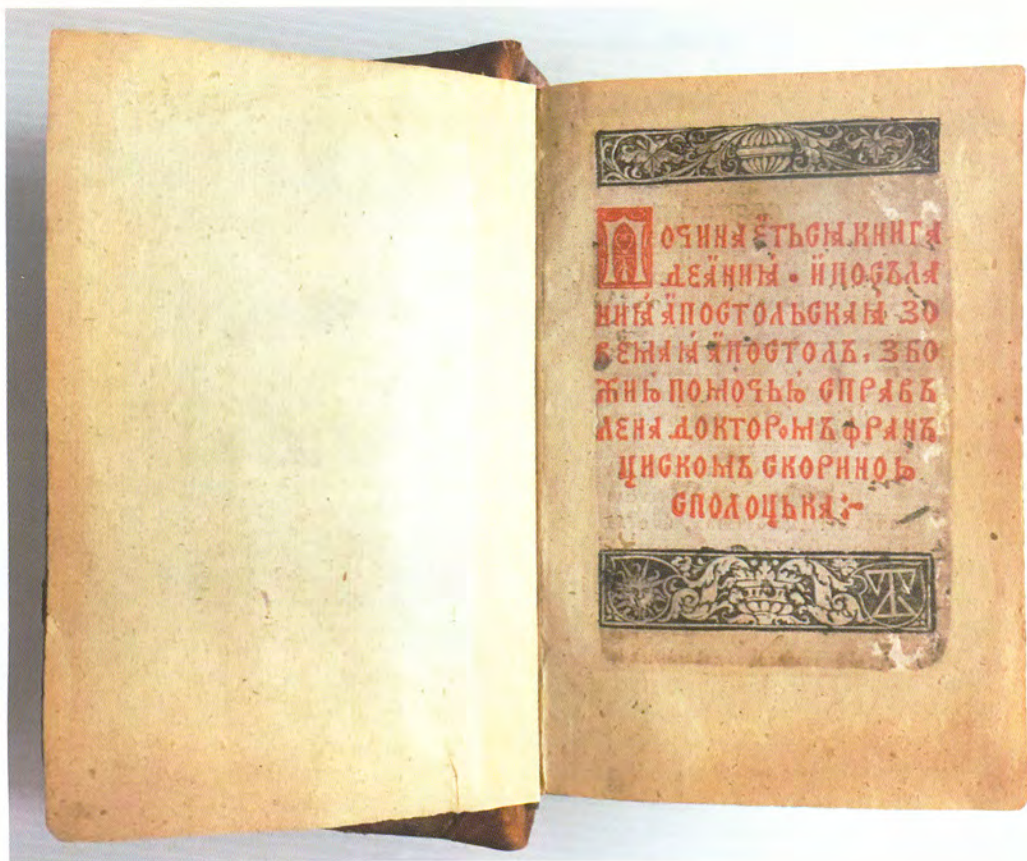 Починаеться книга
деяния · ипосъла
ния апостольская зо
вемая апостолъ, з бо
жию помочью справъ
лена доктором франъ
циском скориною
сполоцька :~